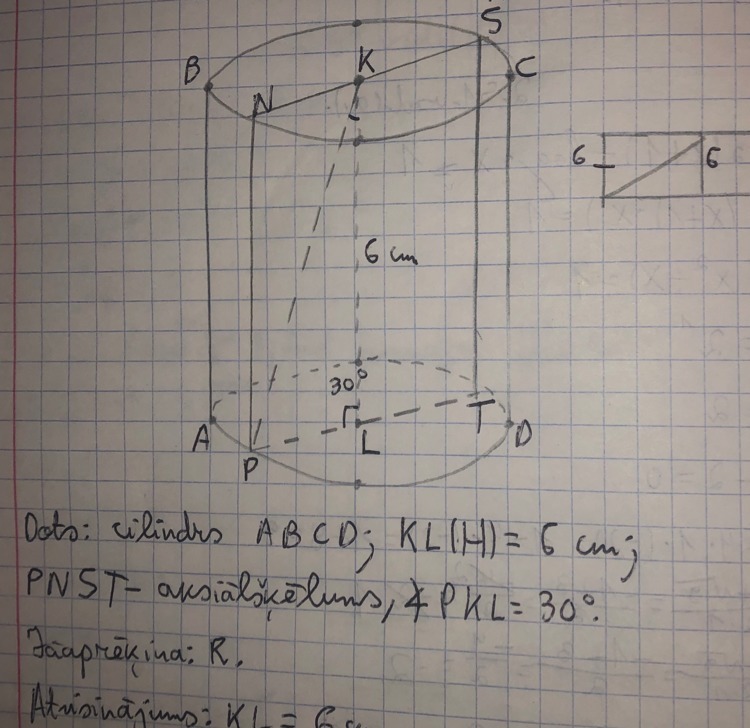 S
B
K
C
N
6
6
6 cm
30°
A
L
T
D
P
Dots: cilindrs ABCD; KL(H) = 6 cm;
PNST - aksiālšķēlums, ∢PKL = 30°.
Jāaprēķina: R.
Atrisinājums: KL = 6